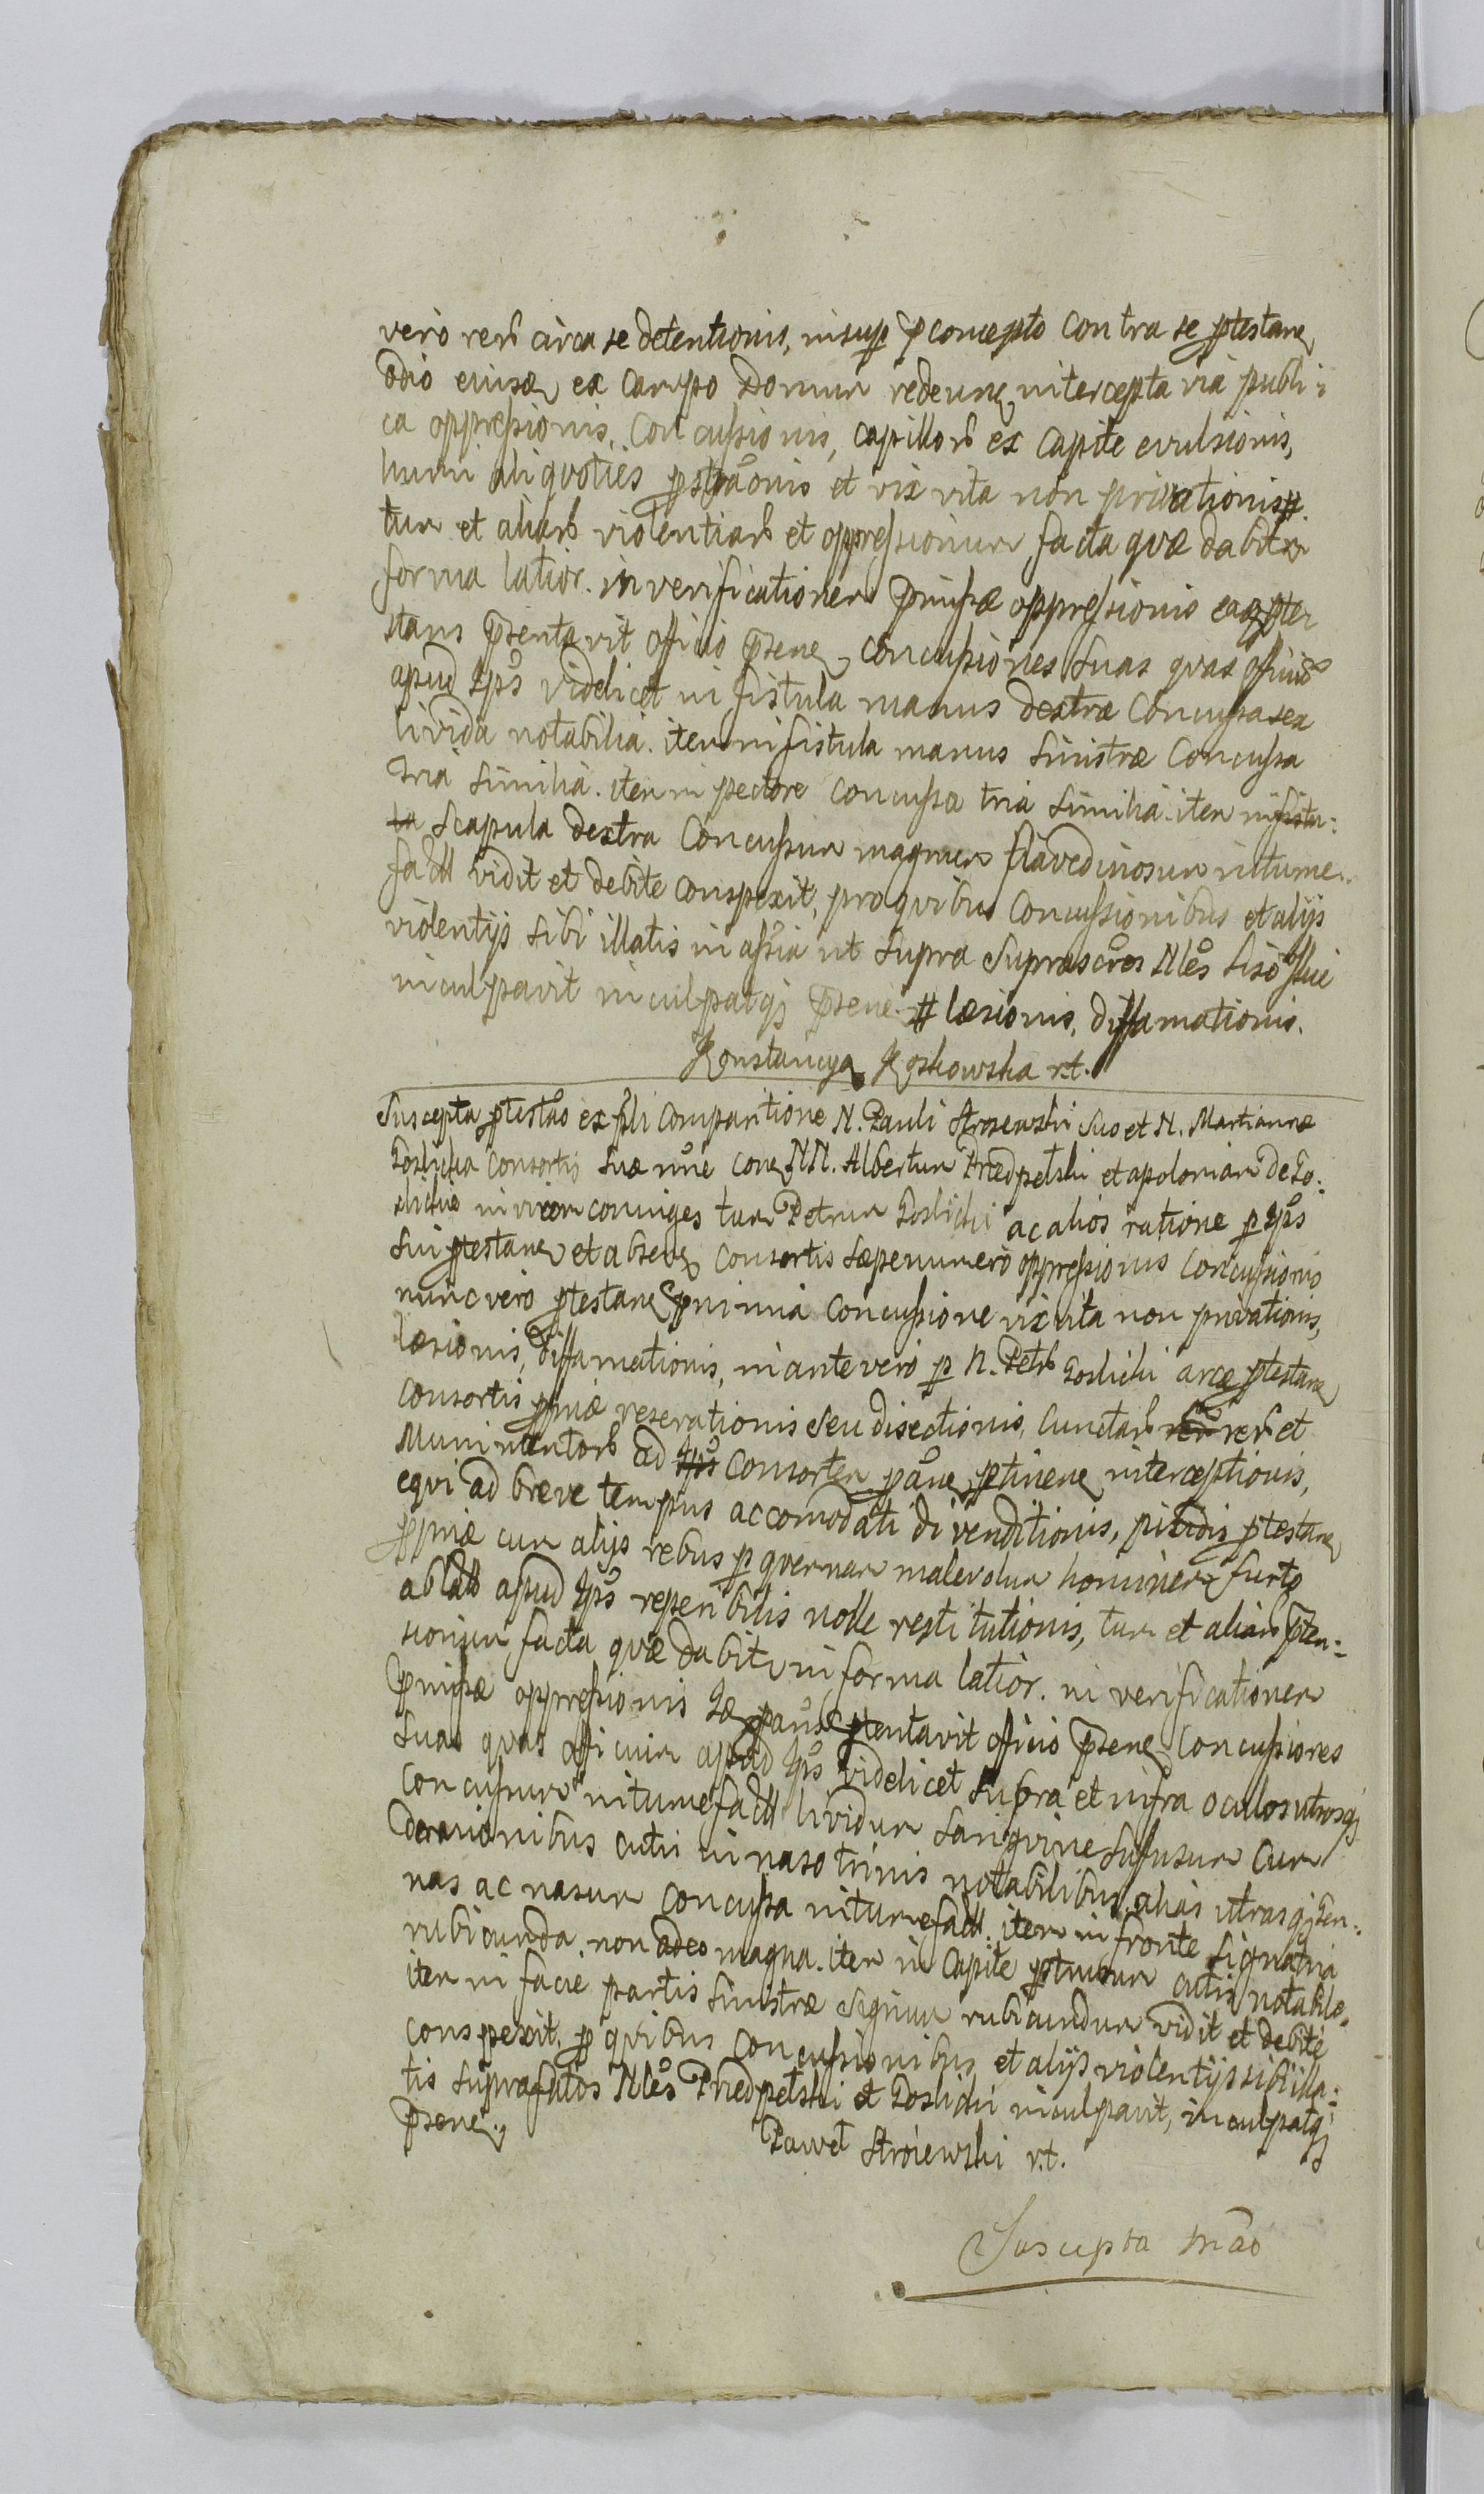 vero reru circa se detentionis, insup p concepto contra se ptestane
odio eiusq ex campo Domum redeune intercepta via publi
ca oppressionis, Concussionis, capilloru ex Capite evulsionis,
humi aliquoties pstraonis et vix vita non privationis #
tum et aliaru violentiaru et oppressionum facta quæ dabitr
forma latior. in verificationem pmissæ oppressionis eaq ptes
stans psentavit officio psene concussiones suas quas offium
apud Ips videlicet in fistula manus dextræ Concussa sex
livida notabilia. item in fistula manus sinistræ Concussa
tria similia. item in pectore concussa tria similia. item in fistu:
la Scapula dextra Concussum magnum flavedinosum intume
factt vidit et debite conspexit, pro quibus Concussionibus et alijs
violentijs sibi illatis in assia ut supra suprascros Nles
inculpavit inculpatqj psene. # læsionis, diffamationis.
Konstancya Koskowska r.t.
Suscepta ptestao ex psli Comparitione N. Pauli Stroiewski suo et N. Martiannæ
Goslicka Consortis suæ nne cone NN. Albertum Przedpelski et apoloniam De Go:
slickie invicem coniuges tum Petrum Goslicki ac alios ratione p Ips
sui ptestane et absene Consortis sæpenumero oppressionis Concussionis
nunc vero ptestane p nimia Concussione vix vita non privationis,
læsionis, diffamationis, in ante vero p N. Petru Goslicki arcæ ptestane
Consortis ppriæ reserationis seu disectionis, Cunctaru reru et
Munimentoru ad Ips Consortem pane ptinene interceptionis,
equi ad breve tempus accomodati divenditionis, pixidis ptestane
ppriæ cum alijs rebus p quempiam malevolum hominem furto
ablatt apud Ips reperibilis nolle restitutionis, tum et aliaru pten:
sionum facta quæ dabitr in forma latior. in verificationem
pmissæ oppressionis psentavit officio psene Concussiones
suas quas officium apud Ips videlicet supra et infra oculos utrosqj
Concussum intumefactt lividum sanguine sufusum Cum
cutis in naso trinis notabilibus, alias utrasqj Gen:
nas ac nasum Concussa intumefactt. item in fronte signa tria
rubicunda non adeo magna. item in Capite ptrusum cutis notabile.
item in facie partis sinistræ signum rubicundum vidit et debite
conspexit. p quibus Concussionibus et alijs violentijs sibi illa:
tis suprafatos Nles Przedpelski et Goslicki inculpavit, inculpatqj
psene.
Paweł Stroiewski r.t.
Suscepta mao